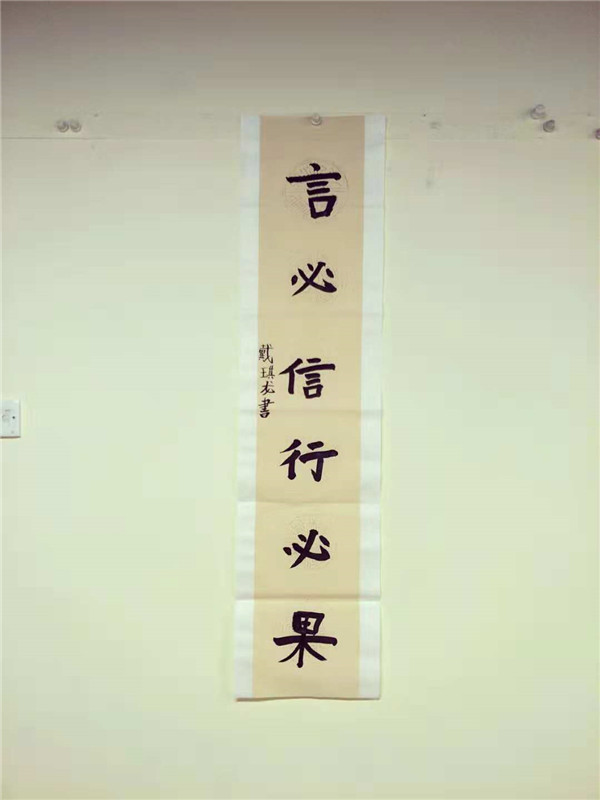 言必信行必果
戴琪龙書